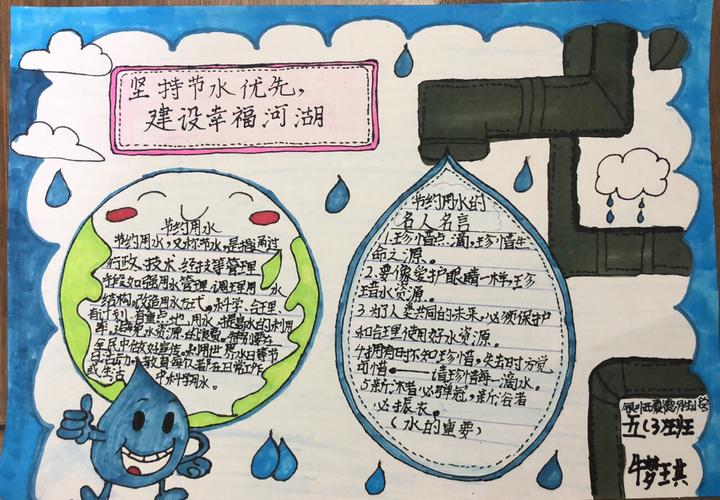 坚持节水优先，
建设幸福河湖
节约用水
节约用水，又称节水，是指通过
行政、技术、经技等管理
手段加强用水管理，调理用水
结构，改造用水方式，科学、合理、
有计划、有重点地用水，提高水的利用
率，避免水资源的浪费。特别要在
全民中做好宣传。利用世界水日等节
日活动，教育每个人都在日常工作
或生活中科学用水。
节约用水的
名人名言
1.珍惜点滴，珍惜生
命之源。
2.要像爱护眼睛一样，珍
惜水资源。
3.为了人类共同的未来，必须保护
和合理使用好水资源。
4.拥有时不知珍惜，失去时方觉
可惜。——请珍惜每一滴水。
5.新沐者必弹冠，新浴者
必振衣。
（水的重要）
五（3）班